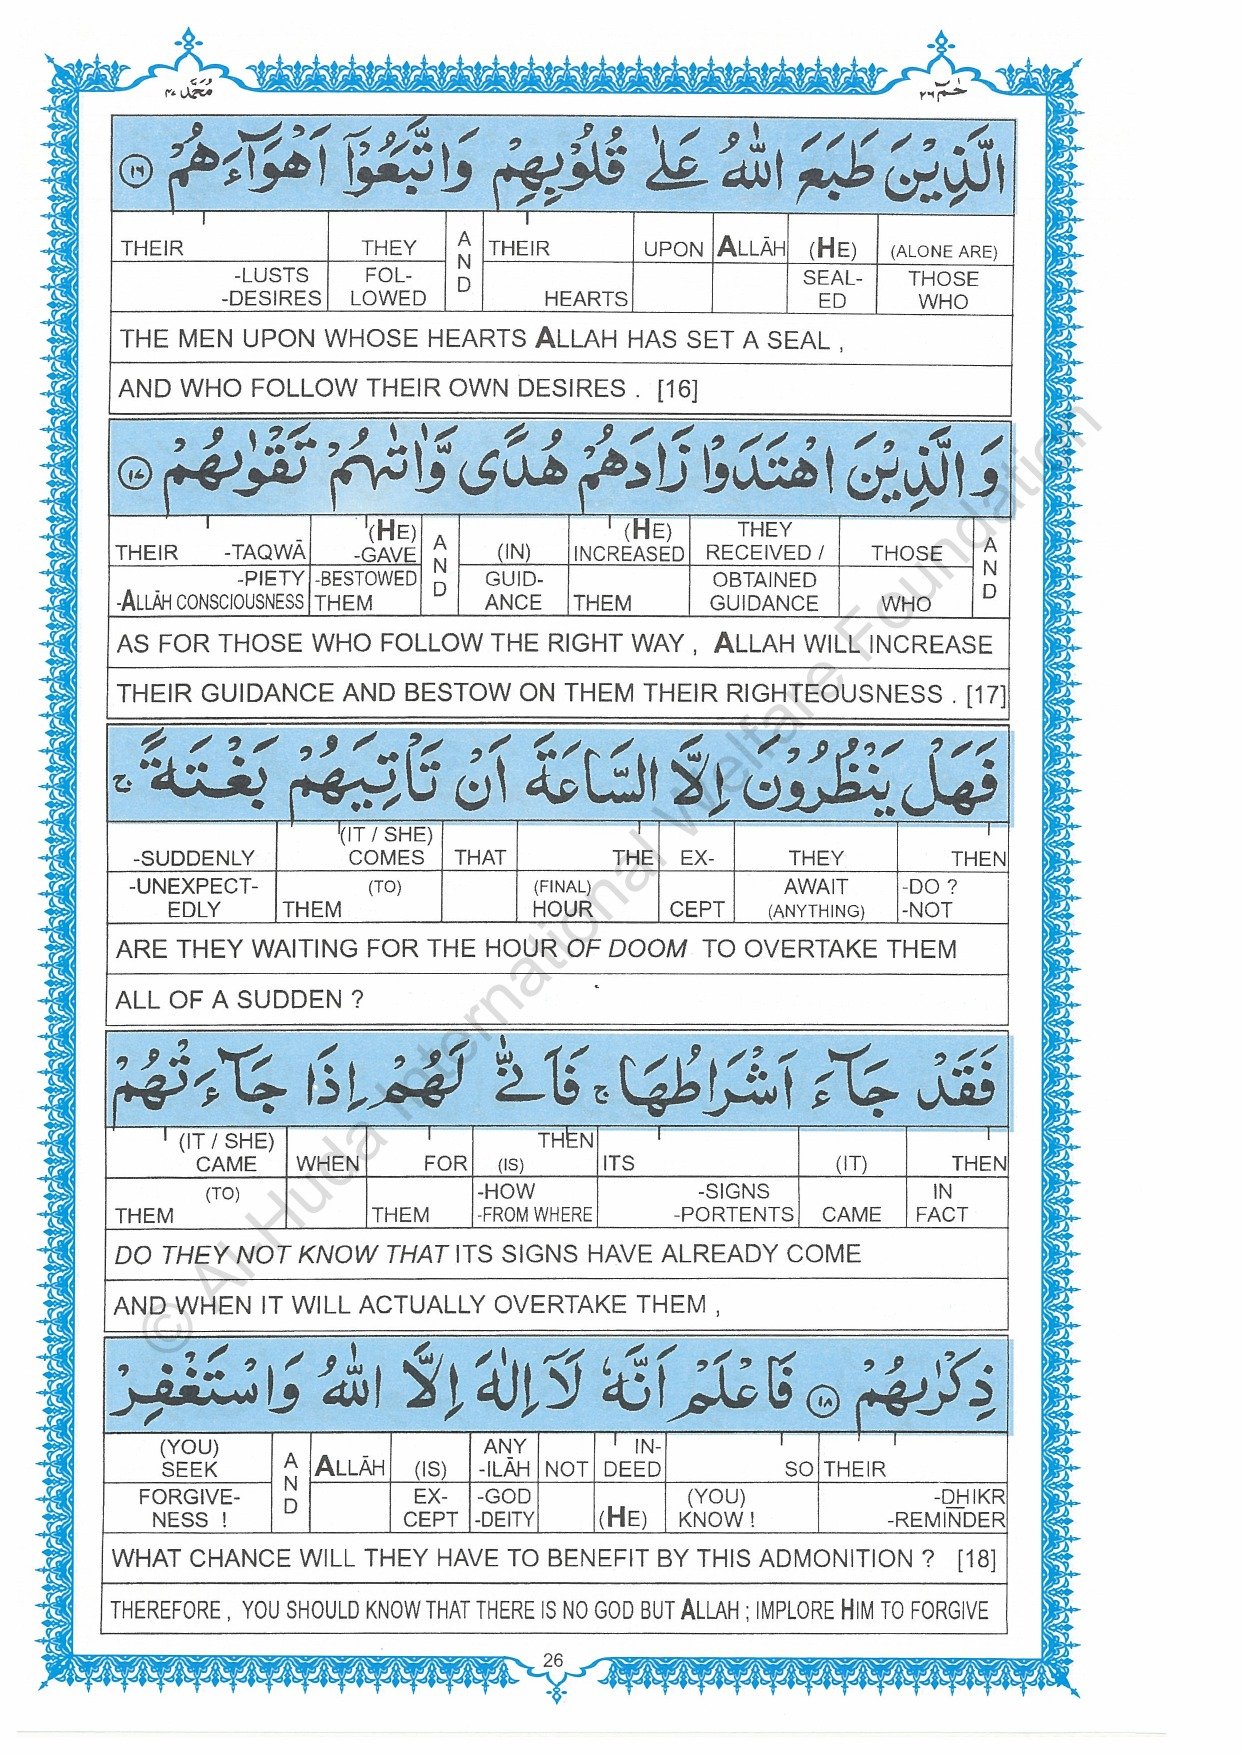 محمد ٤٧
حٰمٓ ٢٦
الَّذِيْنَ طَبَعَ اللّٰهُ عَلٰى قُلُوْبِهِمْ وَاتَّبَعُوْٓا اَهْوَآءَهُمْ ١٦
THEIR THEY A N D THEIR UPON ALLĀH (HE) (ALONE ARE)
-LUSTS FOL- SEAL- THOSE
-DESIRES LOWED HEARTS ED WHO
THE MEN UPON WHOSE HEARTS ALLAH HAS SET A SEAL ,
AND WHO FOLLOW THEIR OWN DESIRES . [16]
وَالَّذِيْنَ اهْتَدَوْا زَادَهُمْ هُدًى وَّاٰتٰىهُمْ تَقْوٰىهُمْ ١٧
(HE) (HE) THEY
THEIR -TAQWĀ -GAVE A N D (IN) INCREASED RECEIVED / THOSE A N D
-PIETY -BESTOWED GUID- OBTAINED
-ALLĀH CONSCIOUSNESS THEM ANCE THEM GUIDANCE WHO
AS FOR THOSE WHO FOLLOW THE RIGHT WAY , ALLAH WILL INCREASE
THEIR GUIDANCE AND BESTOW ON THEM THEIR RIGHTEOUSNESS . [17]
فَهَلْ يَنْظُرُوْنَ اِلَّا السَّاعَةَ اَنْ تَاْتِيَهُمْ بَغْتَةً ۚ
(IT / SHE)
-SUDDENLY COMES THAT THE EX- THEY THEN
-UNEXPECT- (TO) (FINAL) AWAIT -DO ?
EDLY THEM HOUR CEPT (ANYTHING) -NOT
ARE THEY WAITING FOR THE HOUR OF DOOM TO OVERTAKE THEM
ALL OF A SUDDEN ?
فَقَدْ جَآءَ اَشْرَاطُهَا ۚ فَاَنّٰى لَهُمْ اِذَا جَآءَتْهُمْ
(IT / SHE) THEN
CAME WHEN FOR (IS) ITS (IT) THEN
(TO) -HOW -SIGNS IN
THEM THEM -FROM WHERE -PORTENTS CAME FACT
DO THEY NOT KNOW THAT ITS SIGNS HAVE ALREADY COME
AND WHEN IT WILL ACTUALLY OVERTAKE THEM ,
ذِكْرٰىهُمْ ١٨ فَاعْلَمْ اَنَّهٗ لَآ اِلٰهَ اِلَّا اللّٰهُ وَاسْتَغْفِرْ
(YOU) ANY IN-
SEEK A N D ALLĀH (IS) -ILĀH NOT DEED SO THEIR
FORGIVE- EX- -GOD (YOU) -DHIKR
NESS ! CEPT -DEITY (HE) KNOW ! -REMINDER
WHAT CHANCE WILL THEY HAVE TO BENEFIT BY THIS ADMONITION ? [18]
THEREFORE , YOU SHOULD KNOW THAT THERE IS NO GOD BUT ALLAH ; IMPLORE HIM TO FORGIVE
26
© Al-Huda International Welfare Foundation